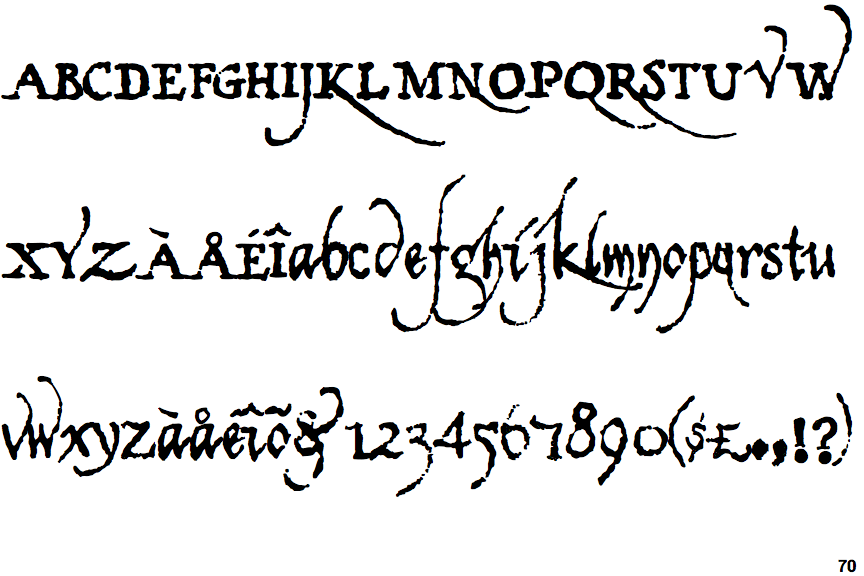 ABCDEFGHIJKLMNOPQRSTUVW
XYZÀÅÉÎabcdefghijklmnopqrstu
vwxyzàåéîõ&1234567890($£.,!?)
70